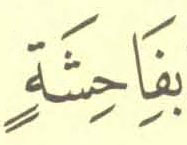 بِفَاحِشَةٍ